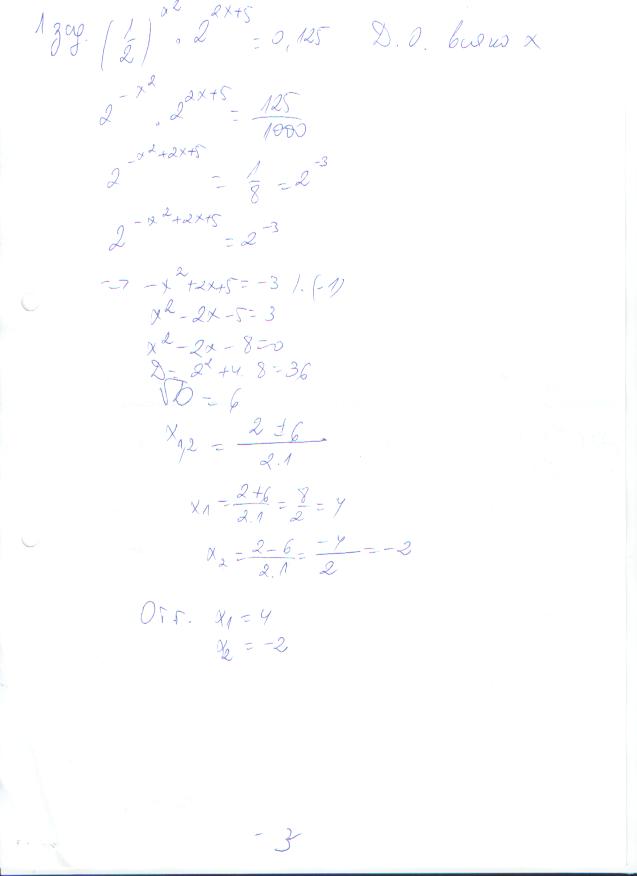 1 зад. (1/2)^x² · 2^(2x+5) = 0,125 Д.О. всяко x
2^(-x²) · 2^(2x+5) = 125/1000
2^(-x²+2x+5) = 1/8 = 2^(-3)
2^(-x²+2x+5) = 2^(-3)
=> -x²+2x+5 = -3 /.(-1)
x² - 2x - 5 = 3
x² - 2x - 8 = 0
D = 2² + 4. 8 = 36
√D = 6
x1,2 = (2 ± 6)/(2.1)
x1 = (2+6)/(2.1) = 8/2 = 4
x2 = (2-6)/(2.1) = -4/2 = -2
Отг. x1 = 4
x2 = -2
- 3